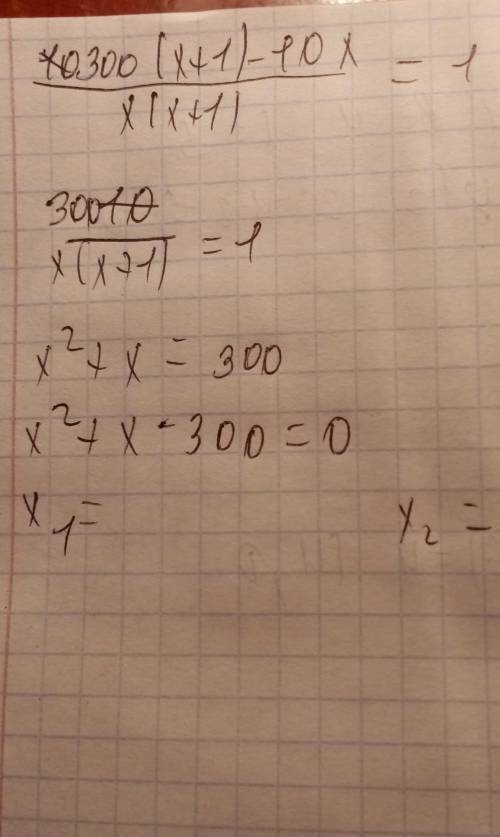 300(x+1)-10x = 1
x(x+1)
300 = 1
x(x+1)
x²+x = 300
x²+x-300=0
x₁= x₂=